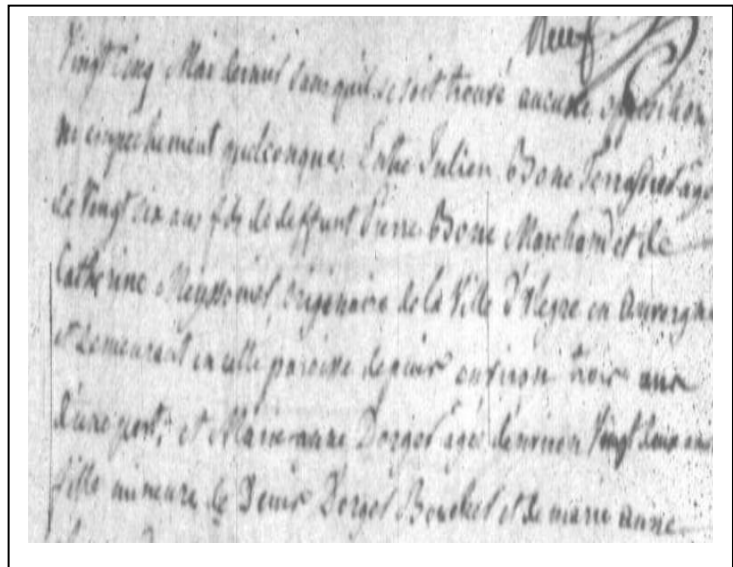 neuf
Vingt cinq Mai dernier sans quil se soit trouvé aucune opposition
ni empechement quelconques. Entre Julien Bone agé
de Vingt six ans fils de deffunt Pierre Bone Marchand et de
Catherine originaire de la Ville d'Alegre en Auvergne
et demeurant en cette paroisse depuis environ trois ans
d'une part, et Marie anne Dorget agée d'environ Vingt deux ans
fille mineure de Denis Dorget et de marie anne